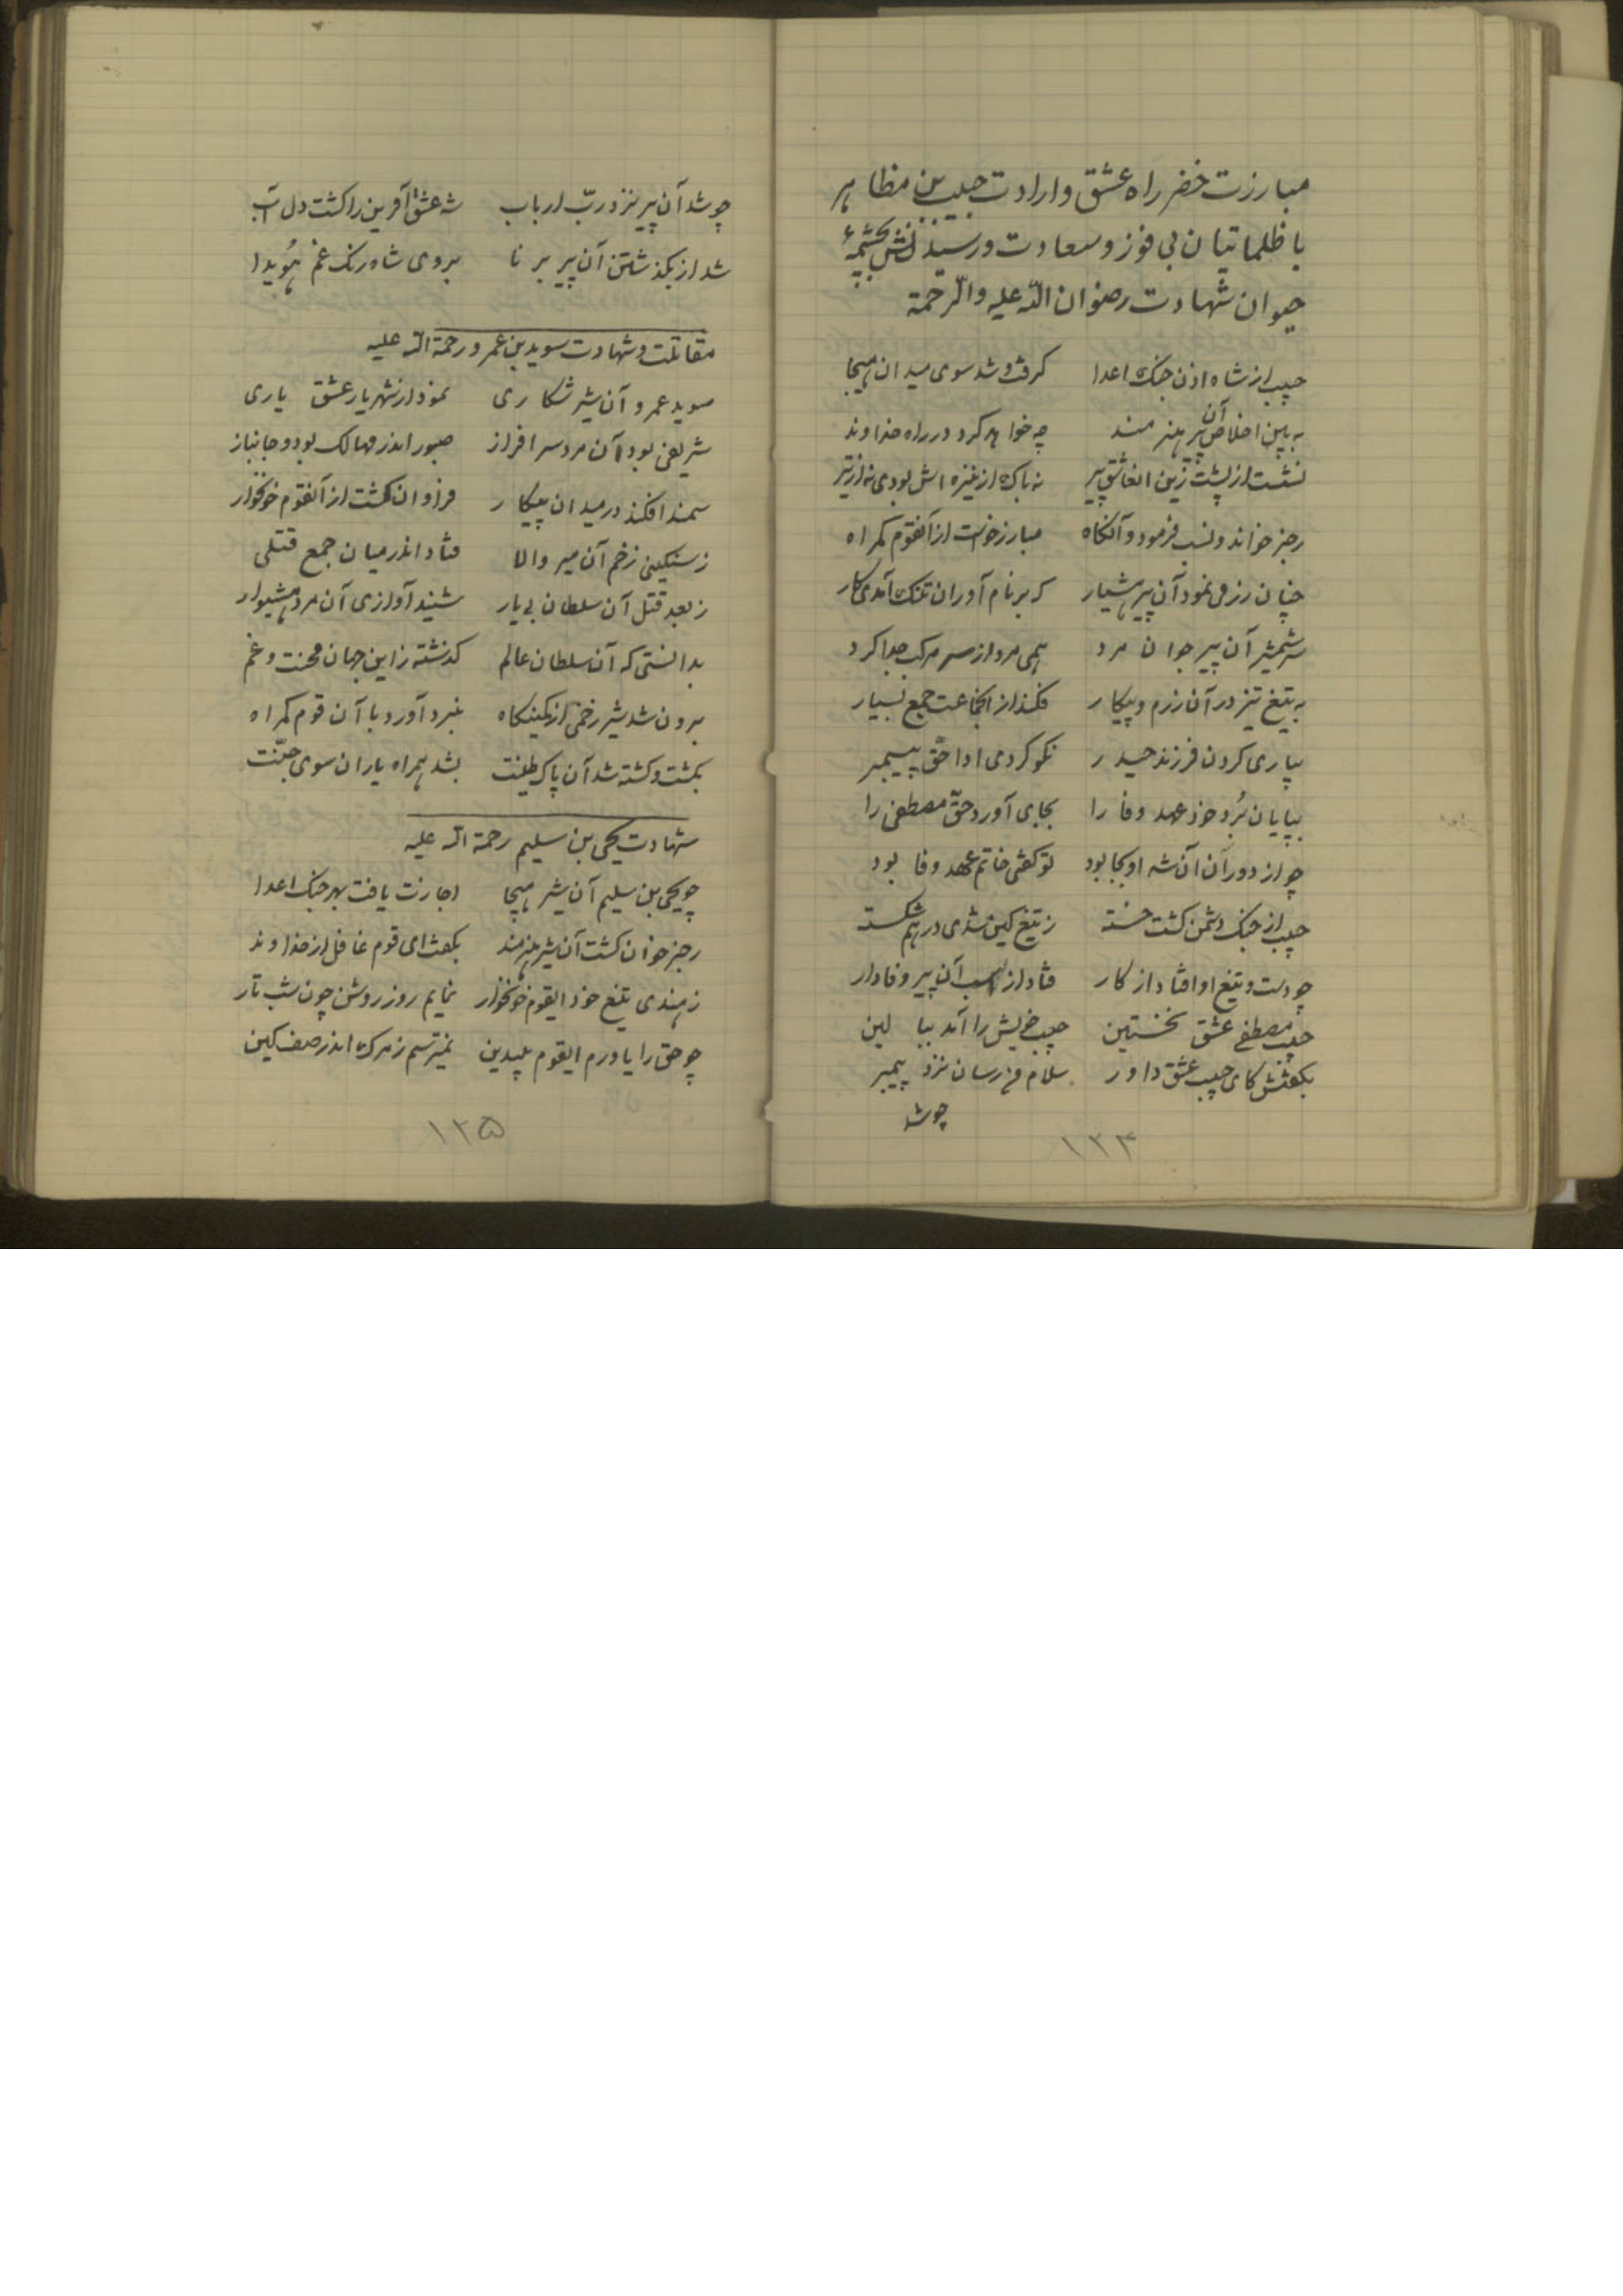 مبارزت خضر راه عشق وارادت حبیب بن مظاهر
با ظلماتیان بی فوز وسعادت ورسیدنش بچشمهٔ
حیوان شهادت رضوان الله علیه والرحمة
حبیب از شاه اذن جنک اعدا گرفت و شد سوی میدان هیجا
به بین اخلاص آن پیر هنرمند چه خواهد کرد در راه خداوند
نشست از پشت زین انعاشق پیر نه باک از نیزه اش بودی نه از تیر
رجز خواند و نسب فرمود و آنکاه مبارز خواست از آنقوم کمراه
چنان رزمی نمود آن پیر هشیار که بر نام آوران تنک آمدی کار
سر شمشیر آن پیر جوان مرد همی مرد از سر مرکب جدا کرد
به تیغ تیز در آن رزم و پیکار فکند از انجماعت جمع بسیار
بیاری کردن فرزند حیدر نکو کردی ادا حق پیمبر
بپایان بُرد خود عهد وفا را بجای آورد حق مصطفی را
چو از دوران آن شه او بجا بود تو کفتی خاتم عهد وفا بود
حبیب از جنک دشمن کشت خسته ز تیغ کین شدی در هم شکسته
چو دست و تیغ او افتاد از کار فتاد از اسب آن پیر وفادار
حبیب مصطفی عشق نخستین حبیب خویش را آمد ببالین
بکفتش کای حبیب عشق داور سلام من رسان نزد پیمبر
چو شد
۱۳۴
چو شد آن پیر نزد ربّ ارباب شه عشق آفرین را کشت دل آب
شد از بکذشتن آن پیر برنا بروی شاه رنک غم هُویدا
مقاتلت و شهادت سوید بن عمرو رحمة الله علیه
سوید عمرو آن شیر شکاری نمود از شهریار عشق یاری
شریفی بود آن مرد سرافراز صبور اندر مهالک بود و جانباز
سمند افکند در میدان پیکار فراوان کشت از آنقوم خونخوار
ز سنکینی زخم آن میر والا فتاد اندر میان جمع قتلی
ز بعد قتل آن سلطان بی یار شنید آوازی آن مرد هشیوار
بدانستی که آن سلطان عالم کذشته زاین جهان محنت و غم
برون شد شیر زخمی از کمینکاه نبرد آورد با آن قوم کمراه
بکشت و کشته شد آن پاک طینت بشد همراه یاران سوی جنّت
شهادت یحیی بن سلیم رحمة الله علیه
چو یحیی بن سلیم آن شیر هیجا اجازت یافت بهر جنک اعدا
رجز خوان کشت آن شیر هنرمند بکفت ای قوم غافل از خداوند
ز هندی تیغ خود ایقوم خونخوار نمایم روز روشن چون شب تار
چو حق را یاورم ایقوم بیدین نمیترسم ز مرک اندر صف کین
۱۳۵